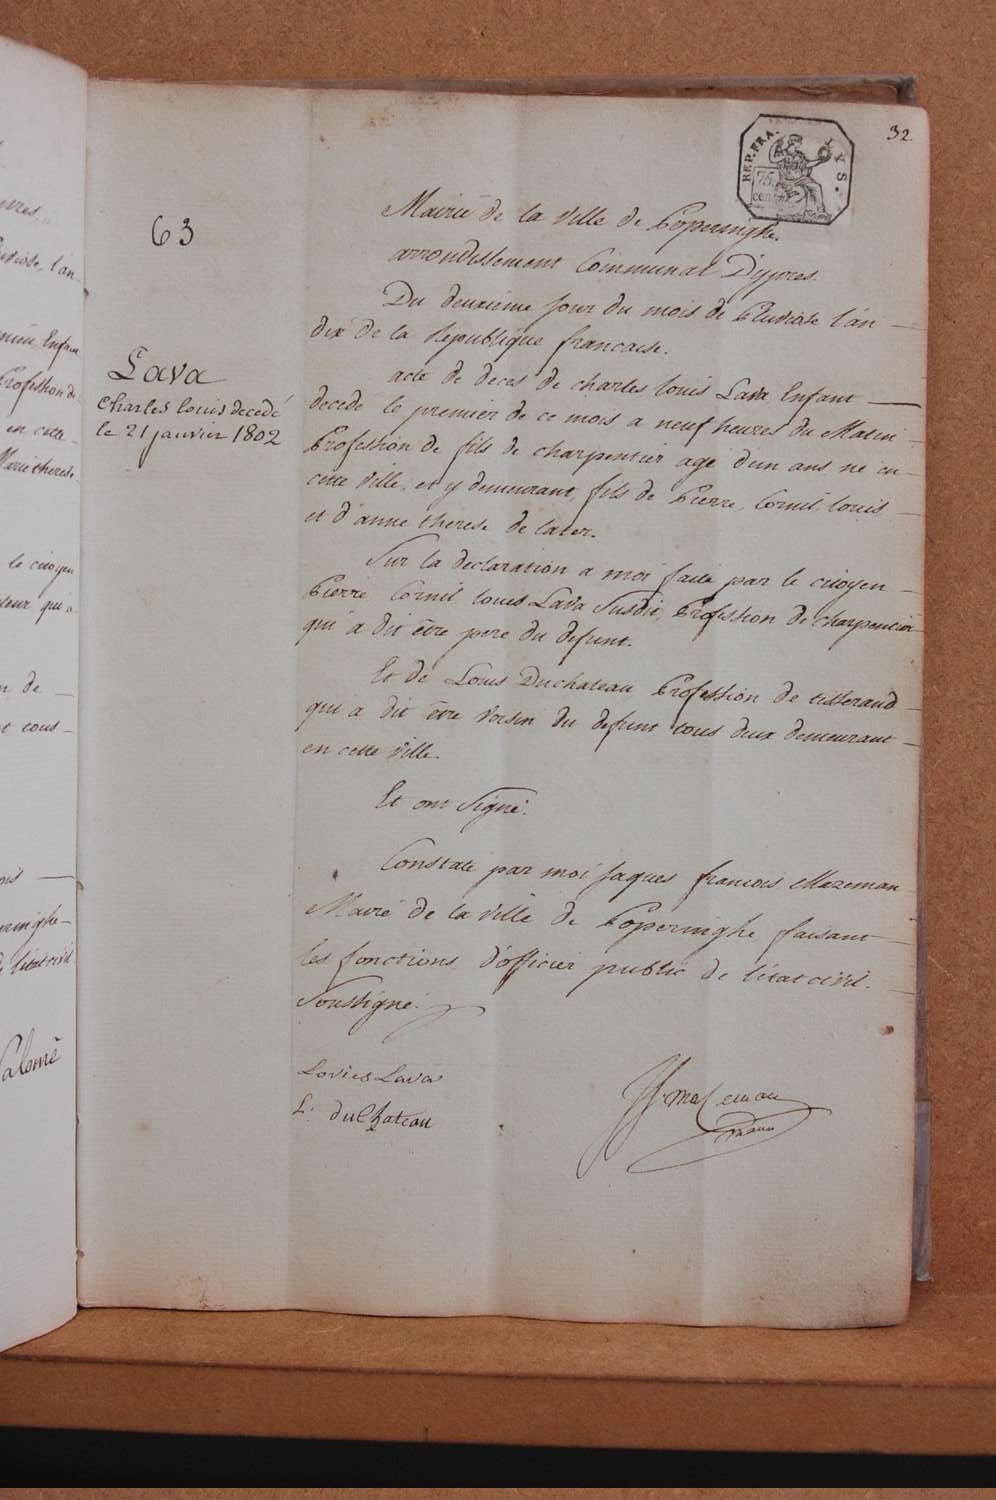 32
REP. FRA.
LYS.
75
cen
63
Mairie de la ville de Poperinghe.
arrondissement Communal D'ypres.
Du deuxieme jour du mois de Pluviose l'an
dix de la republique francaise.
acte de deces de charles louis Lava Enfant
decedé le premier de ce mois a neuf heures du Matin
Profession de fils de charpentier agé d'un ans né en
cette ville, et y demeurant, fils de Pierre, Cornil, louis
et d'anne therese de later.
Sur la declaration a moi faite par le citoyen
Pierre Cornil louis Lava Susdit, Profession de charpentier
qui a dit être pere du defunt.
Et de Louis Duchateau Profession de tisserand
qui a dit être voisin du defunt tous deux demeurant
en cette ville.
Et ont Signé.
Constaté par moi jaques francois Mazeman
Maire de la ville de Poperinghe faisant
les fonctions d'officier public de l'état civil.
Soussigné.
Lovies Lava
L. duChateau
Lava
Charles louis decedé
le 21 janvier 1802
l'an
Enfant
Profession de
en cette
Marie therese
le citoyen
qui a
de
tous
l'état civil